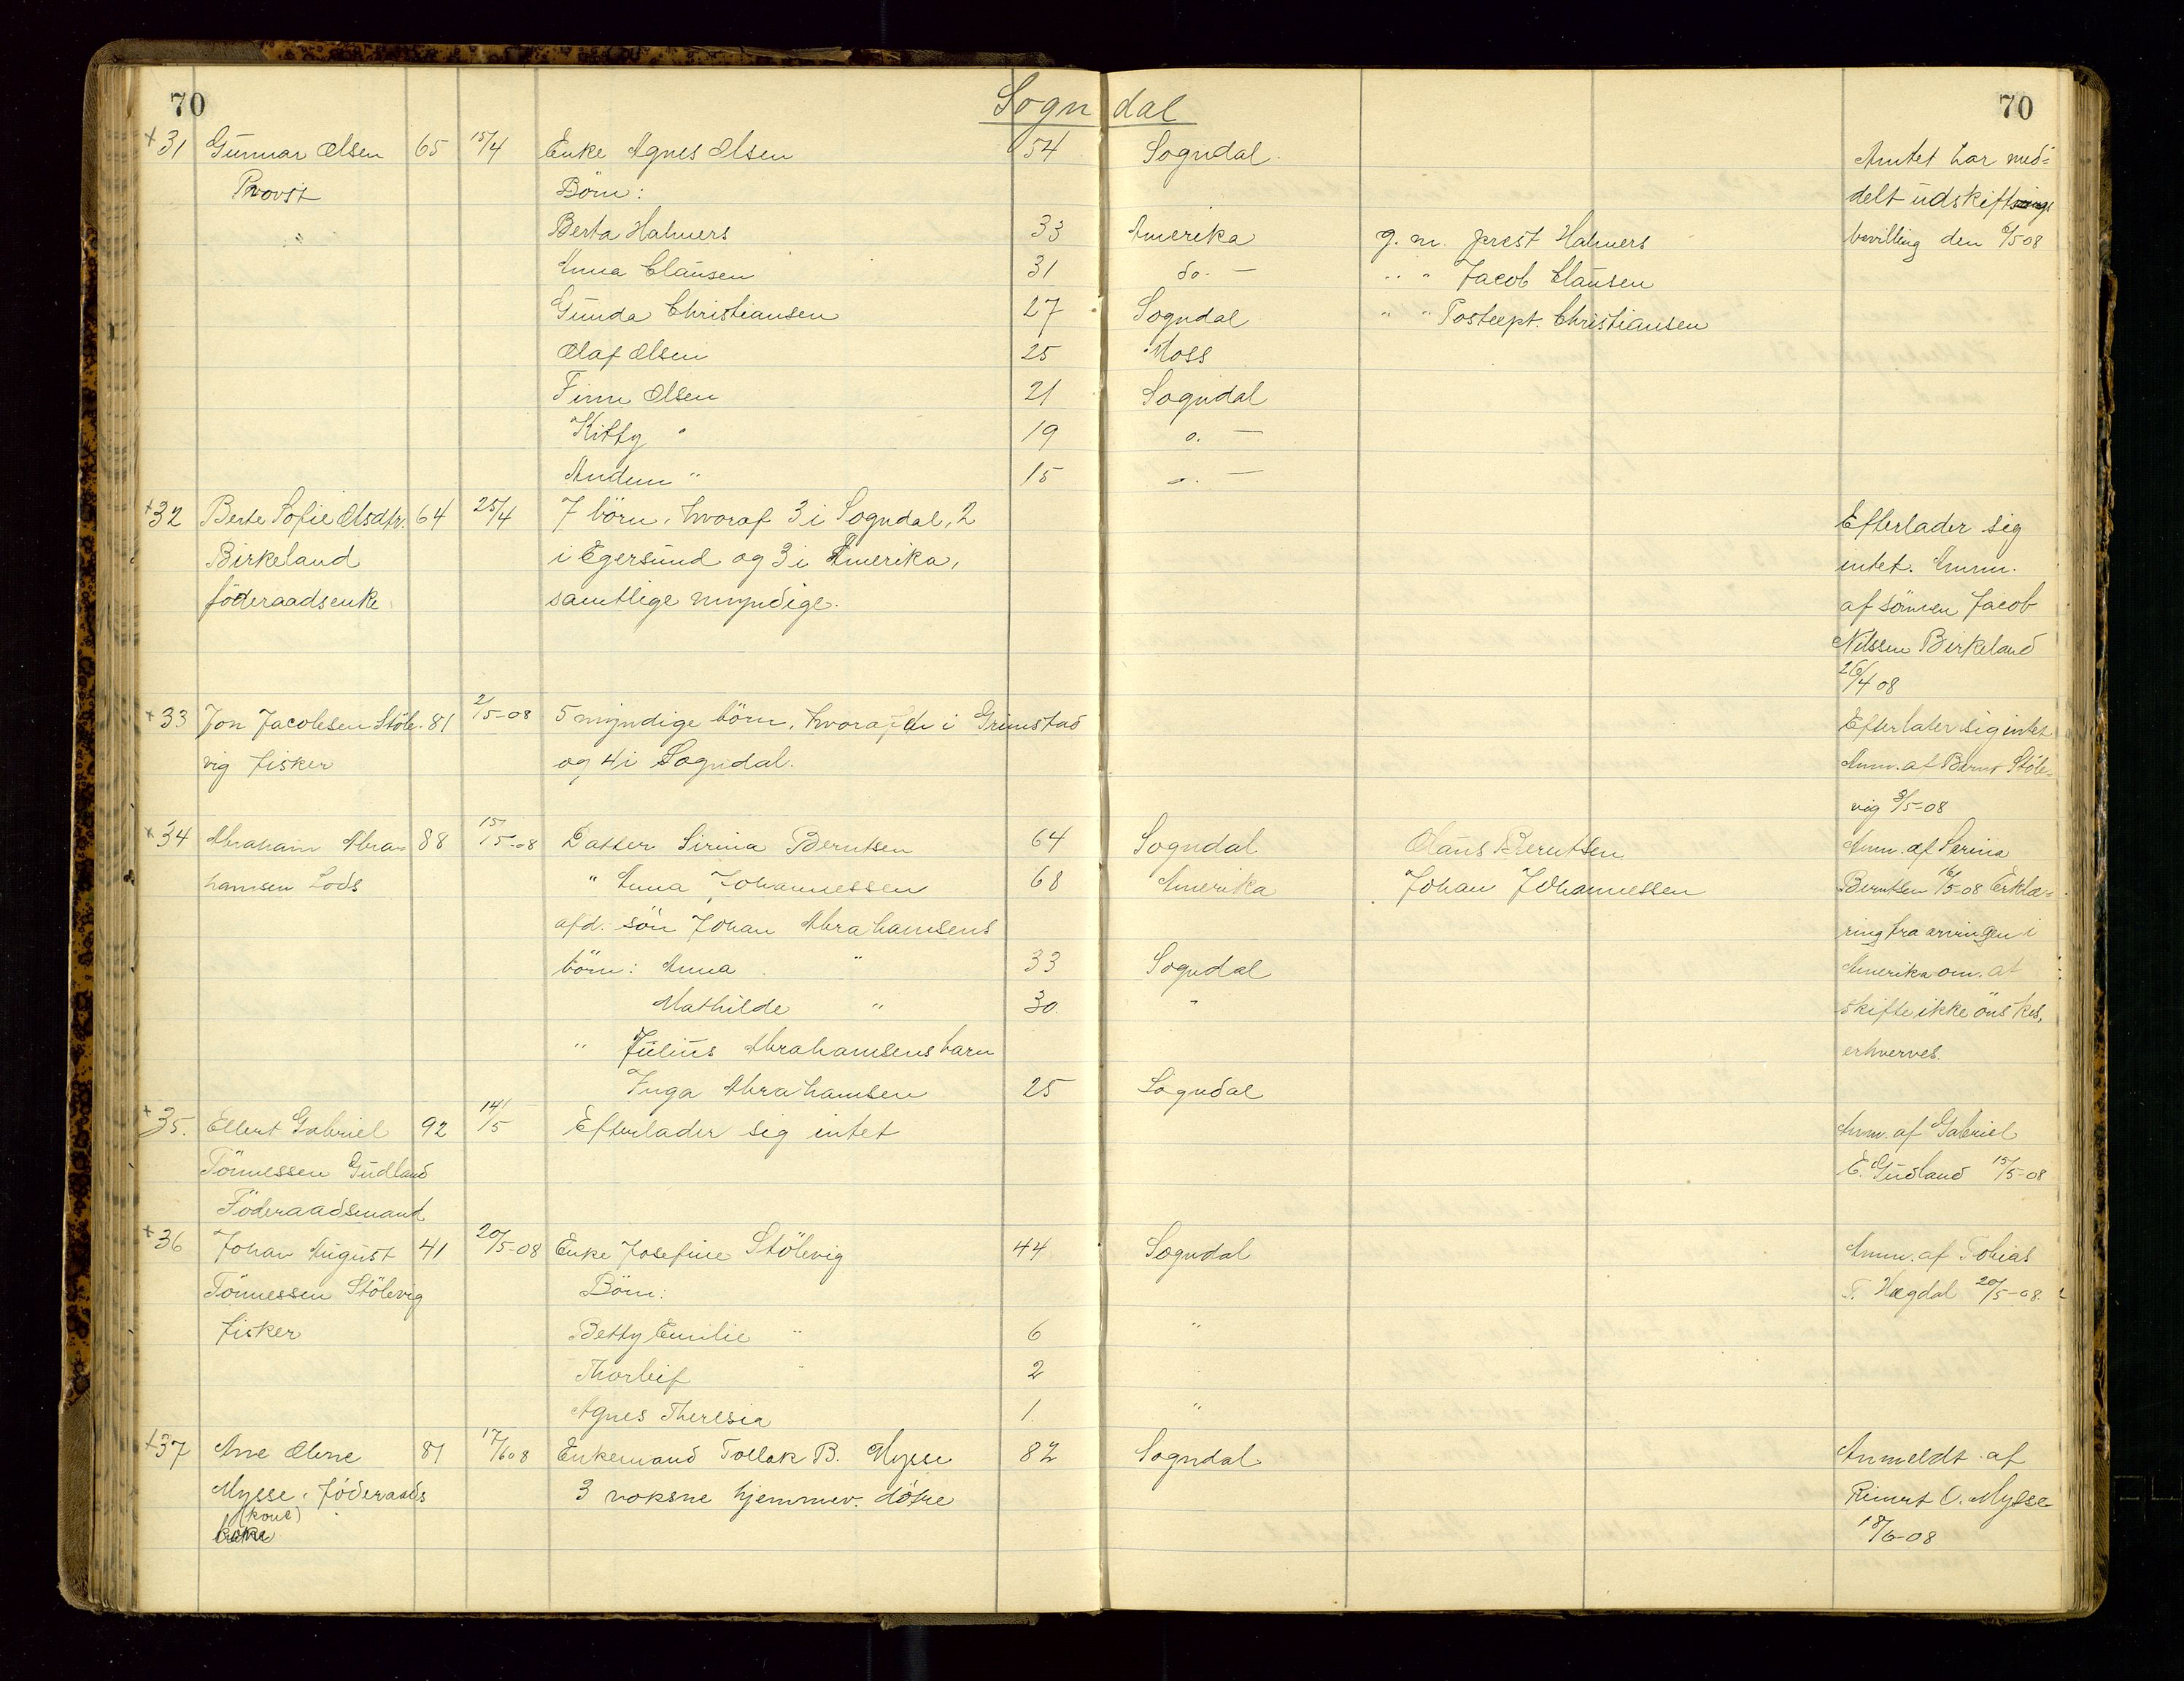 70
Sogndal
70
+31 Gunnar Olsen 65 15/4 Enke Agnes Olsen 54 Sogndal. Amtet har med=
Provst Börn: delt udskiftnings
Berta Halmers 33 Amerika g. m. prest Halmers bevilling den 6/5 08
Anna Clausen 31 do. — " " Jacob Clausen
Gunda Christiansen 27 Sogndal " " Postexpt. Christiansen
Olaf Olsen 25 Moss
Finn Olsen 21 Sogndal
Kitty " 19 o. —
Audun " 15 o. —
+32 Berte Sofie Olsdtr. 64 25/4 7 börn, hvoraf 3 i Sogndal, 2 Efterlader sig
Birkeland i Egersund og 3 i Amerika, intet. Anm.
föderaadsenke samtlige myndige. af sönnen Jacob
Nilssen Birkeland
26/4 08
+33 Jon Jacobsen Stöle- 81 2/5-08 5 myndige börn, hvoraf en i Grimstad Efterlater sig intet
vig fisker og 4 i Sogndal. Anm. af Bernt Stöle-
vig 3/5-08
+34 Abraham Abra= 88 15/5-08 Datter Sirina Berntsen 64 Sogndal Olaus Berntsen Anm. af Serina
hamsen Lods " Anna Johannessen 68 Amerika Johan Johannessen Berntsen 16/5-08 Erklæ=
afd. sön Johan Abrahamsens ring fra arvingen i
börn: Anna " 33 Sogndal Amerika om, at
Mathilde " 30. " skifte ikke önskes,
" Julius Abrahamsens barn erhverves.
Inga Abrahamsen 25 Sogndal
+35. Ellert Gabriel 92 14/5 Efterlader sig intet Anm. af Gabriel
Tönnessen Gudland E. Gudland 15/5-08
Föderaadsmand
+36 Johan August 41 20/5-08 Enke Josefine Stölevig 44 Sogndal Anm. af Tobias
Tönnessen Stölevig Börn: T. Hægdal 20/5-08.
fisker Betty Emilie " 6 "
Thorleif " 2
Agnes Theresia 1. "
+37 Ane Olene 81 17/6 08 Enkemand Tollak B. Mysse 82 Sogndal Anmeldt af
Mysse, föderaads 3 voksne hjemmev. døtre Reinert O. Mysse
(kone) 18/6-08